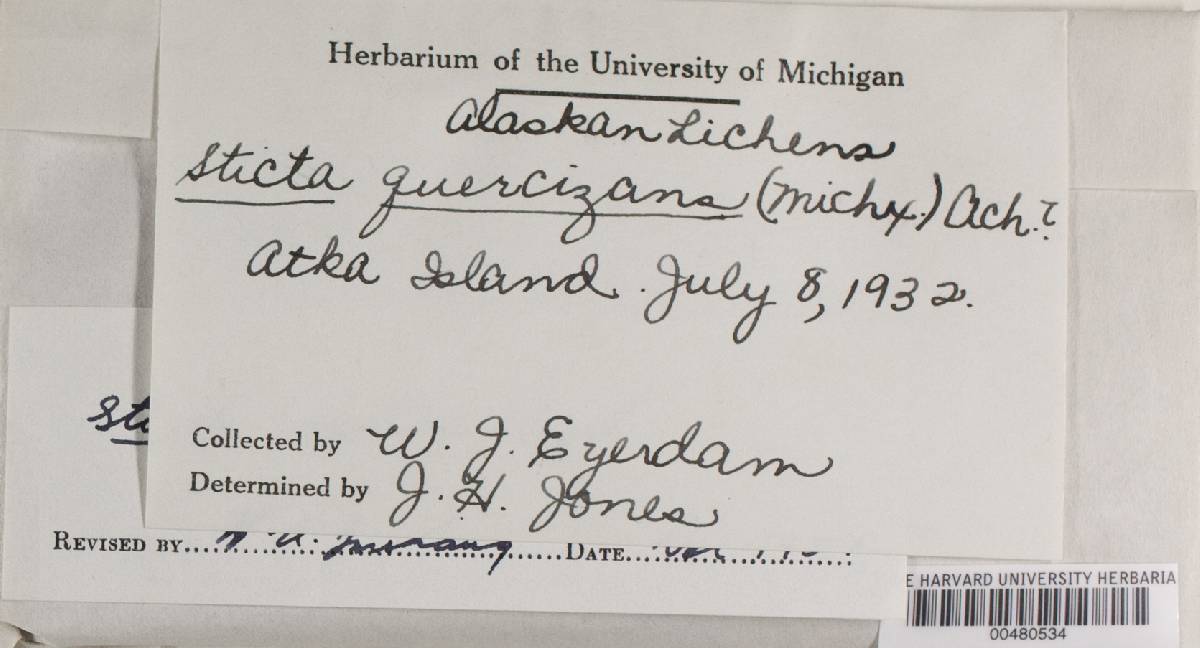 Herbarium of the University of Michigan
Alaskan Lichens
Sticta quercizans (Michx.) Ach. ?
Atka Island. July 8, 1932.
Collected by W. J. Eyerdam
Determined by J. H. Jones
Revised by
Date
E HARVARD UNIVERSITY HERBARIA
00480534